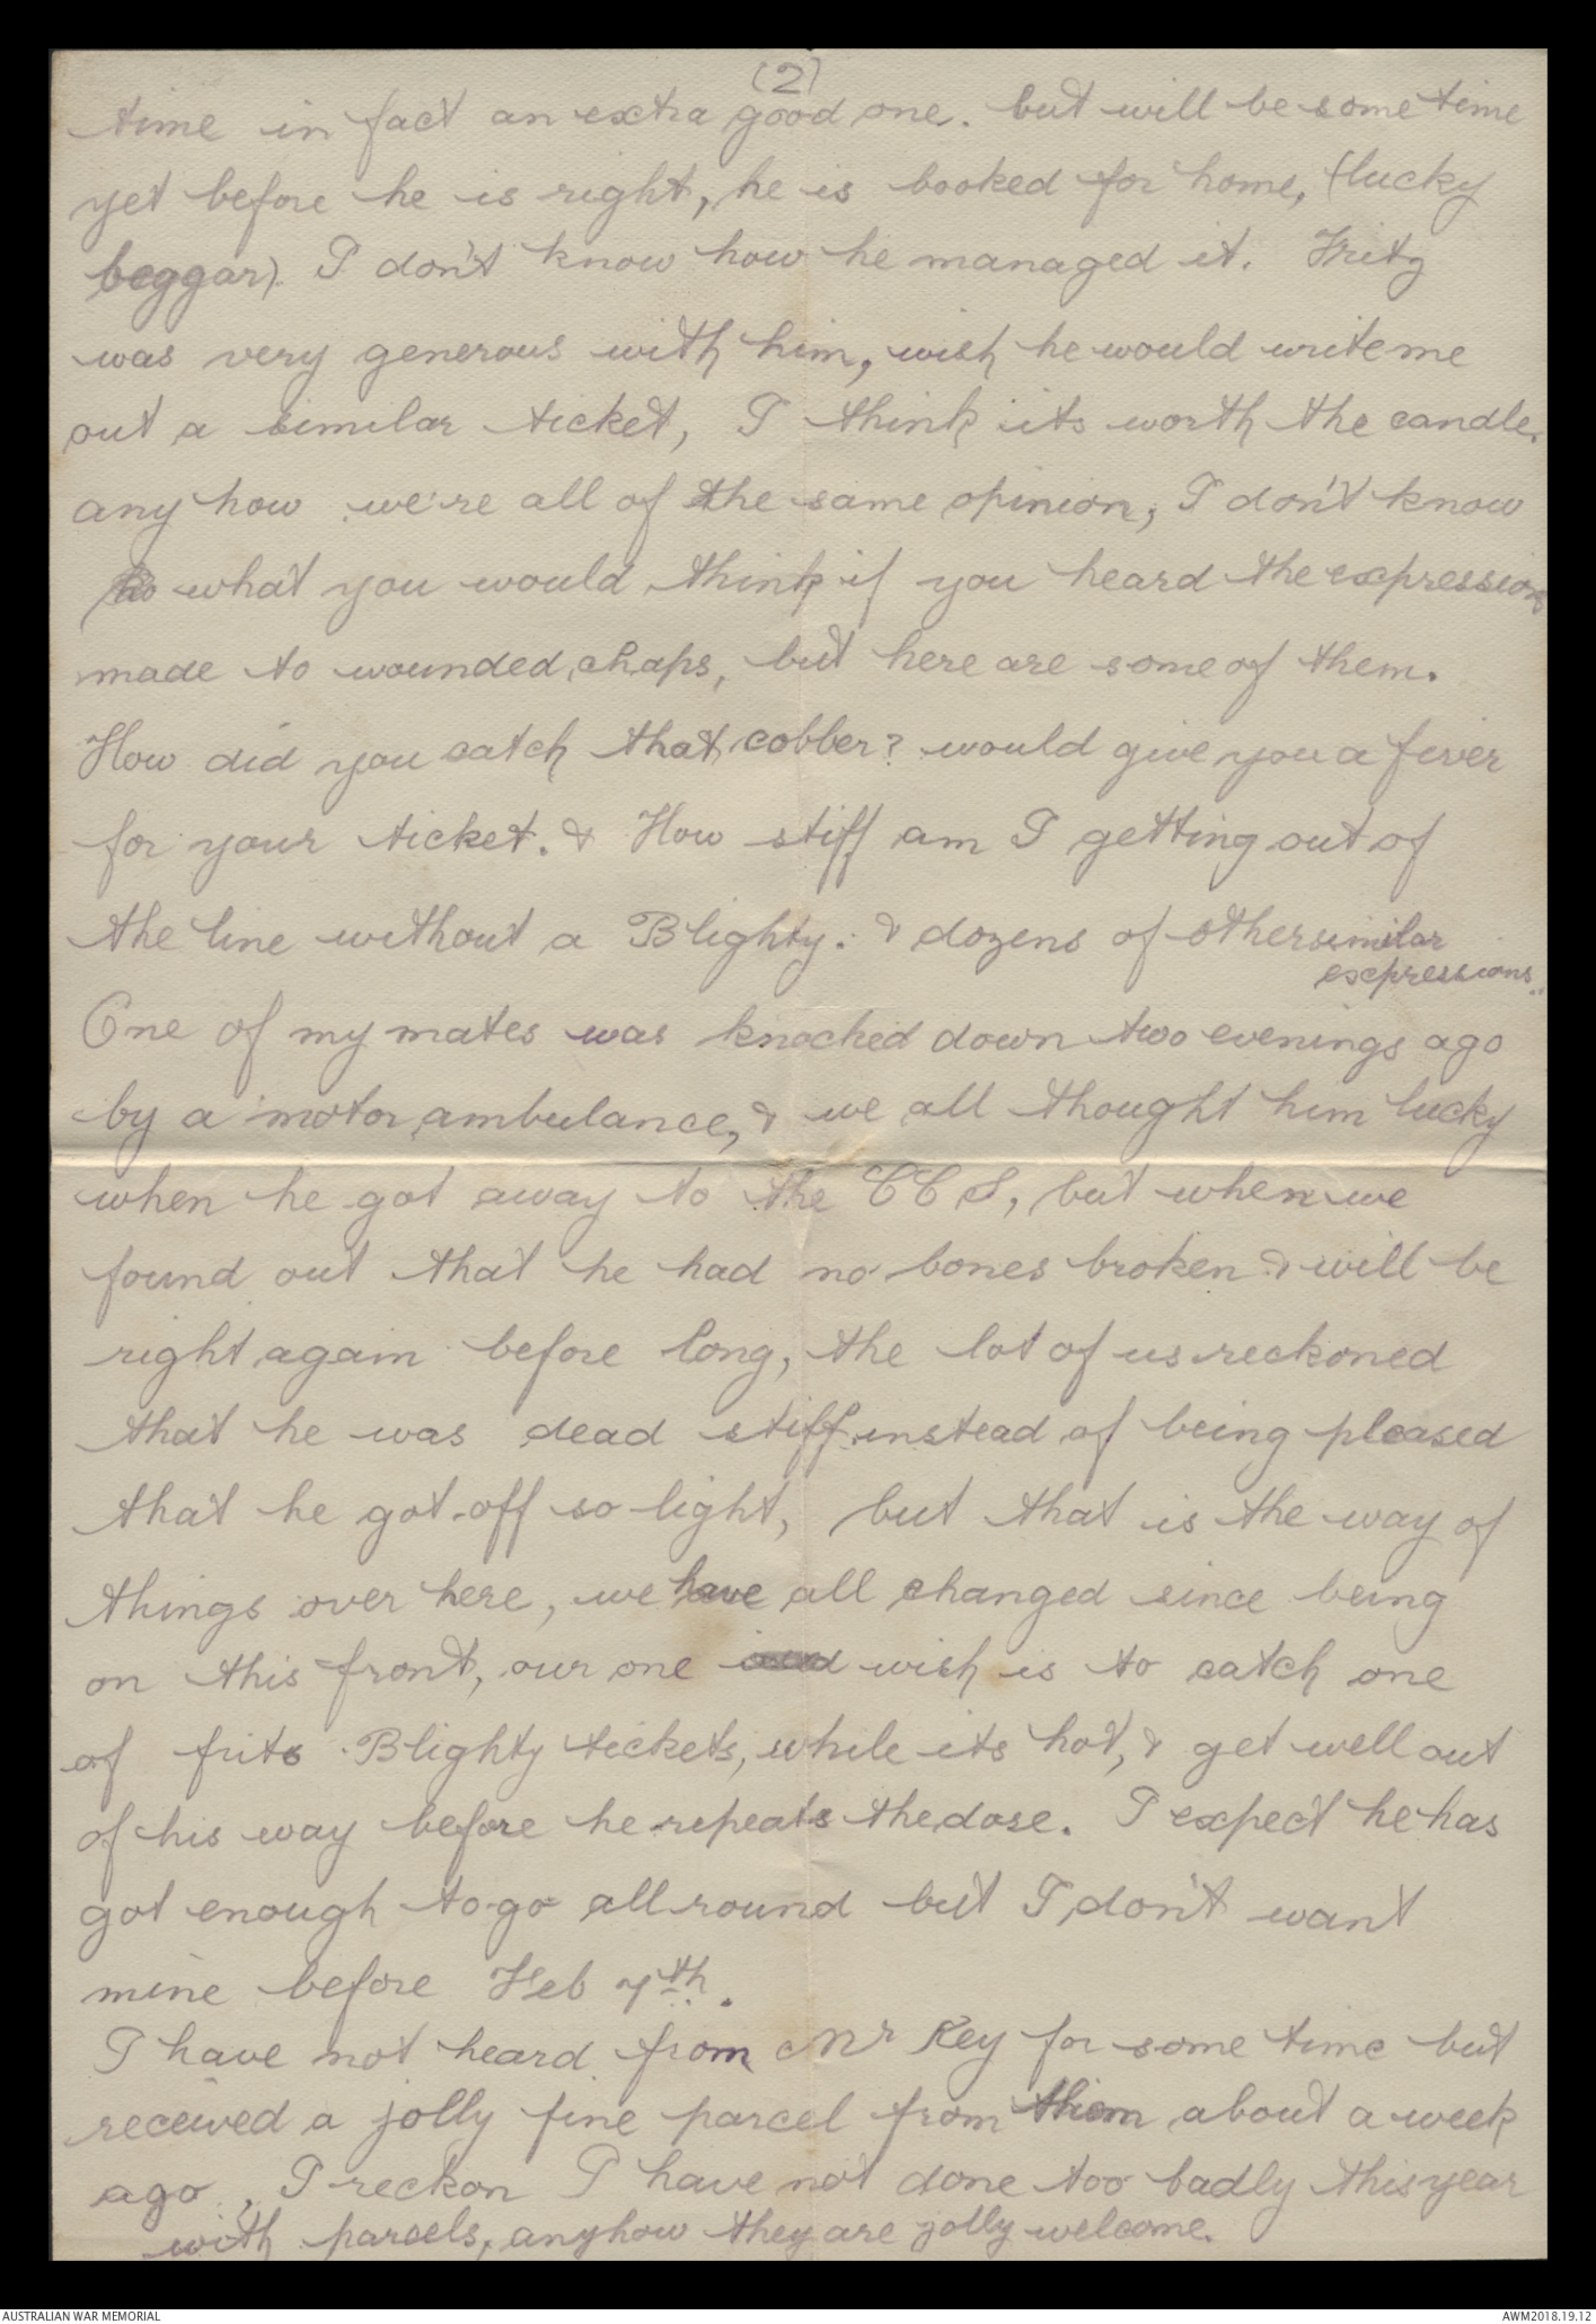 (2)
time in fact an extra good one. but will be some time
yet before he is right, he is booked for home, (lucky
beggar). I don't know how he managed it. Fritz
was very generous with him, wish he would write me
out a similar ticket, I think its worth the candle.
any how we're all of the same opinion, I don't know
what you would think if you heard the expressions
made to wounded chaps, but here are some of them.
How did you catch that cobber? would give you a fiver
for your ticket. & How stiff am I getting out of
the line without a Blighty. & dozens of other similar
expressions.
One of my mates was knocked down two evenings ago
by a motor ambulance, & we all thought him lucky
when he got away to the CCS, but when we
found out that he had no bones broken & will be
right again before long, the lot of us reckoned
that he was dead stiff instead of being pleased
that he got off so light, but that is the way of
things over here, we have all changed since being
on this front, our one wish is to catch one
of frits Blighty tickets, while its hot, & get well out
of his way before he repeats the dose. I expect he has
got enough to go all round but I don't want
mine before Feb 7th.
I have not heard from Mr Key for some time but
received a jolly fine parcel from them about a week
ago, I reckon I have not done too badly this year
with parcels, anyhow they are jolly welcome.
AUSTRALIAN WAR MEMORIAL
AWM2018.19.12